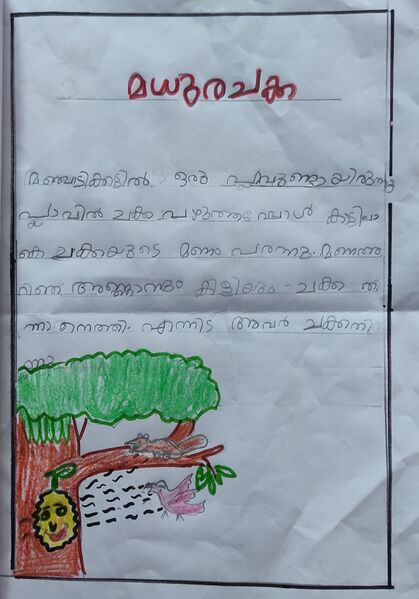 മധുരചക്ക
മഞ്ചാടിക്കാട്ടിൽ ഒരു പ്ലാവുണ്ടായിരുന്നു
പ്ലാവിൽ ചക്ക പഴുത്തപ്പോൾ കാട്ടിലാ
കെ ചക്കയുടെ മണം പരന്നു. മണമ
റിഞ്ഞ് അണ്ണാനും കിളിയും ചക്ക തി
ന്നാനെത്തി. എന്നിട്ട് അവർ ചക്കതി
ന്നു